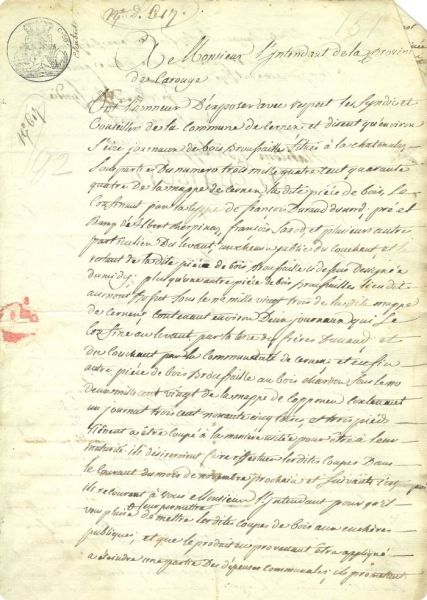 N.º D. 617.
A Monsieur l'Intendant de la province
de Carouge
Ont l'honneur D'exposer avec respect les Syndic et
Conseiller de la Commune de Cernex et disent qu'environ
Seize journaux de bois Broussaille Sittués à la
Sous partie Du numero trois mille quatre cent quarante
quatre de la mappe de Cernex, la dite pièce de bois, Se
Confinant par la de françois Dunand du nord; pré et
Champ de albert François Sardo, et plusieurs autre
particulier Du levant; au chemin public du Couchant, et le
restant de la dite pièce de bois Broussaille ci dessus Designée
du midy; plus qu'une autre pièce de bois Broussailles lieu dit
Sous le n.º mille vingt trois de la dite mappe
de Cernex, Contenant environ Deux journaux qui Se
Confine au levant par la terre des frères Dunand et
du Couchant par la Communauté de Cernex et enfin
autre pièce de bois Broussaille au bois chardon Sous le no
deux mille cent vingt de la mappe de Copponex Contenant
un journal trois cent nonante cinq toises, et trois pieds
a être Coupé à la manière usitée pour être à leur
maturité, ils desireroient faire effectuer les dites Coupes Dans
le Courant du mois de novembre prochain et Suivants
ils recourent à Vous Monsieur l'Intendant pour qu'il
leur permettre
vous plaise de mettre les dites Coupes de bois aux enchères
publiques; et que le produit en provenant être appliqué
a éteindre une partie Des depenses Communales; ils promettent